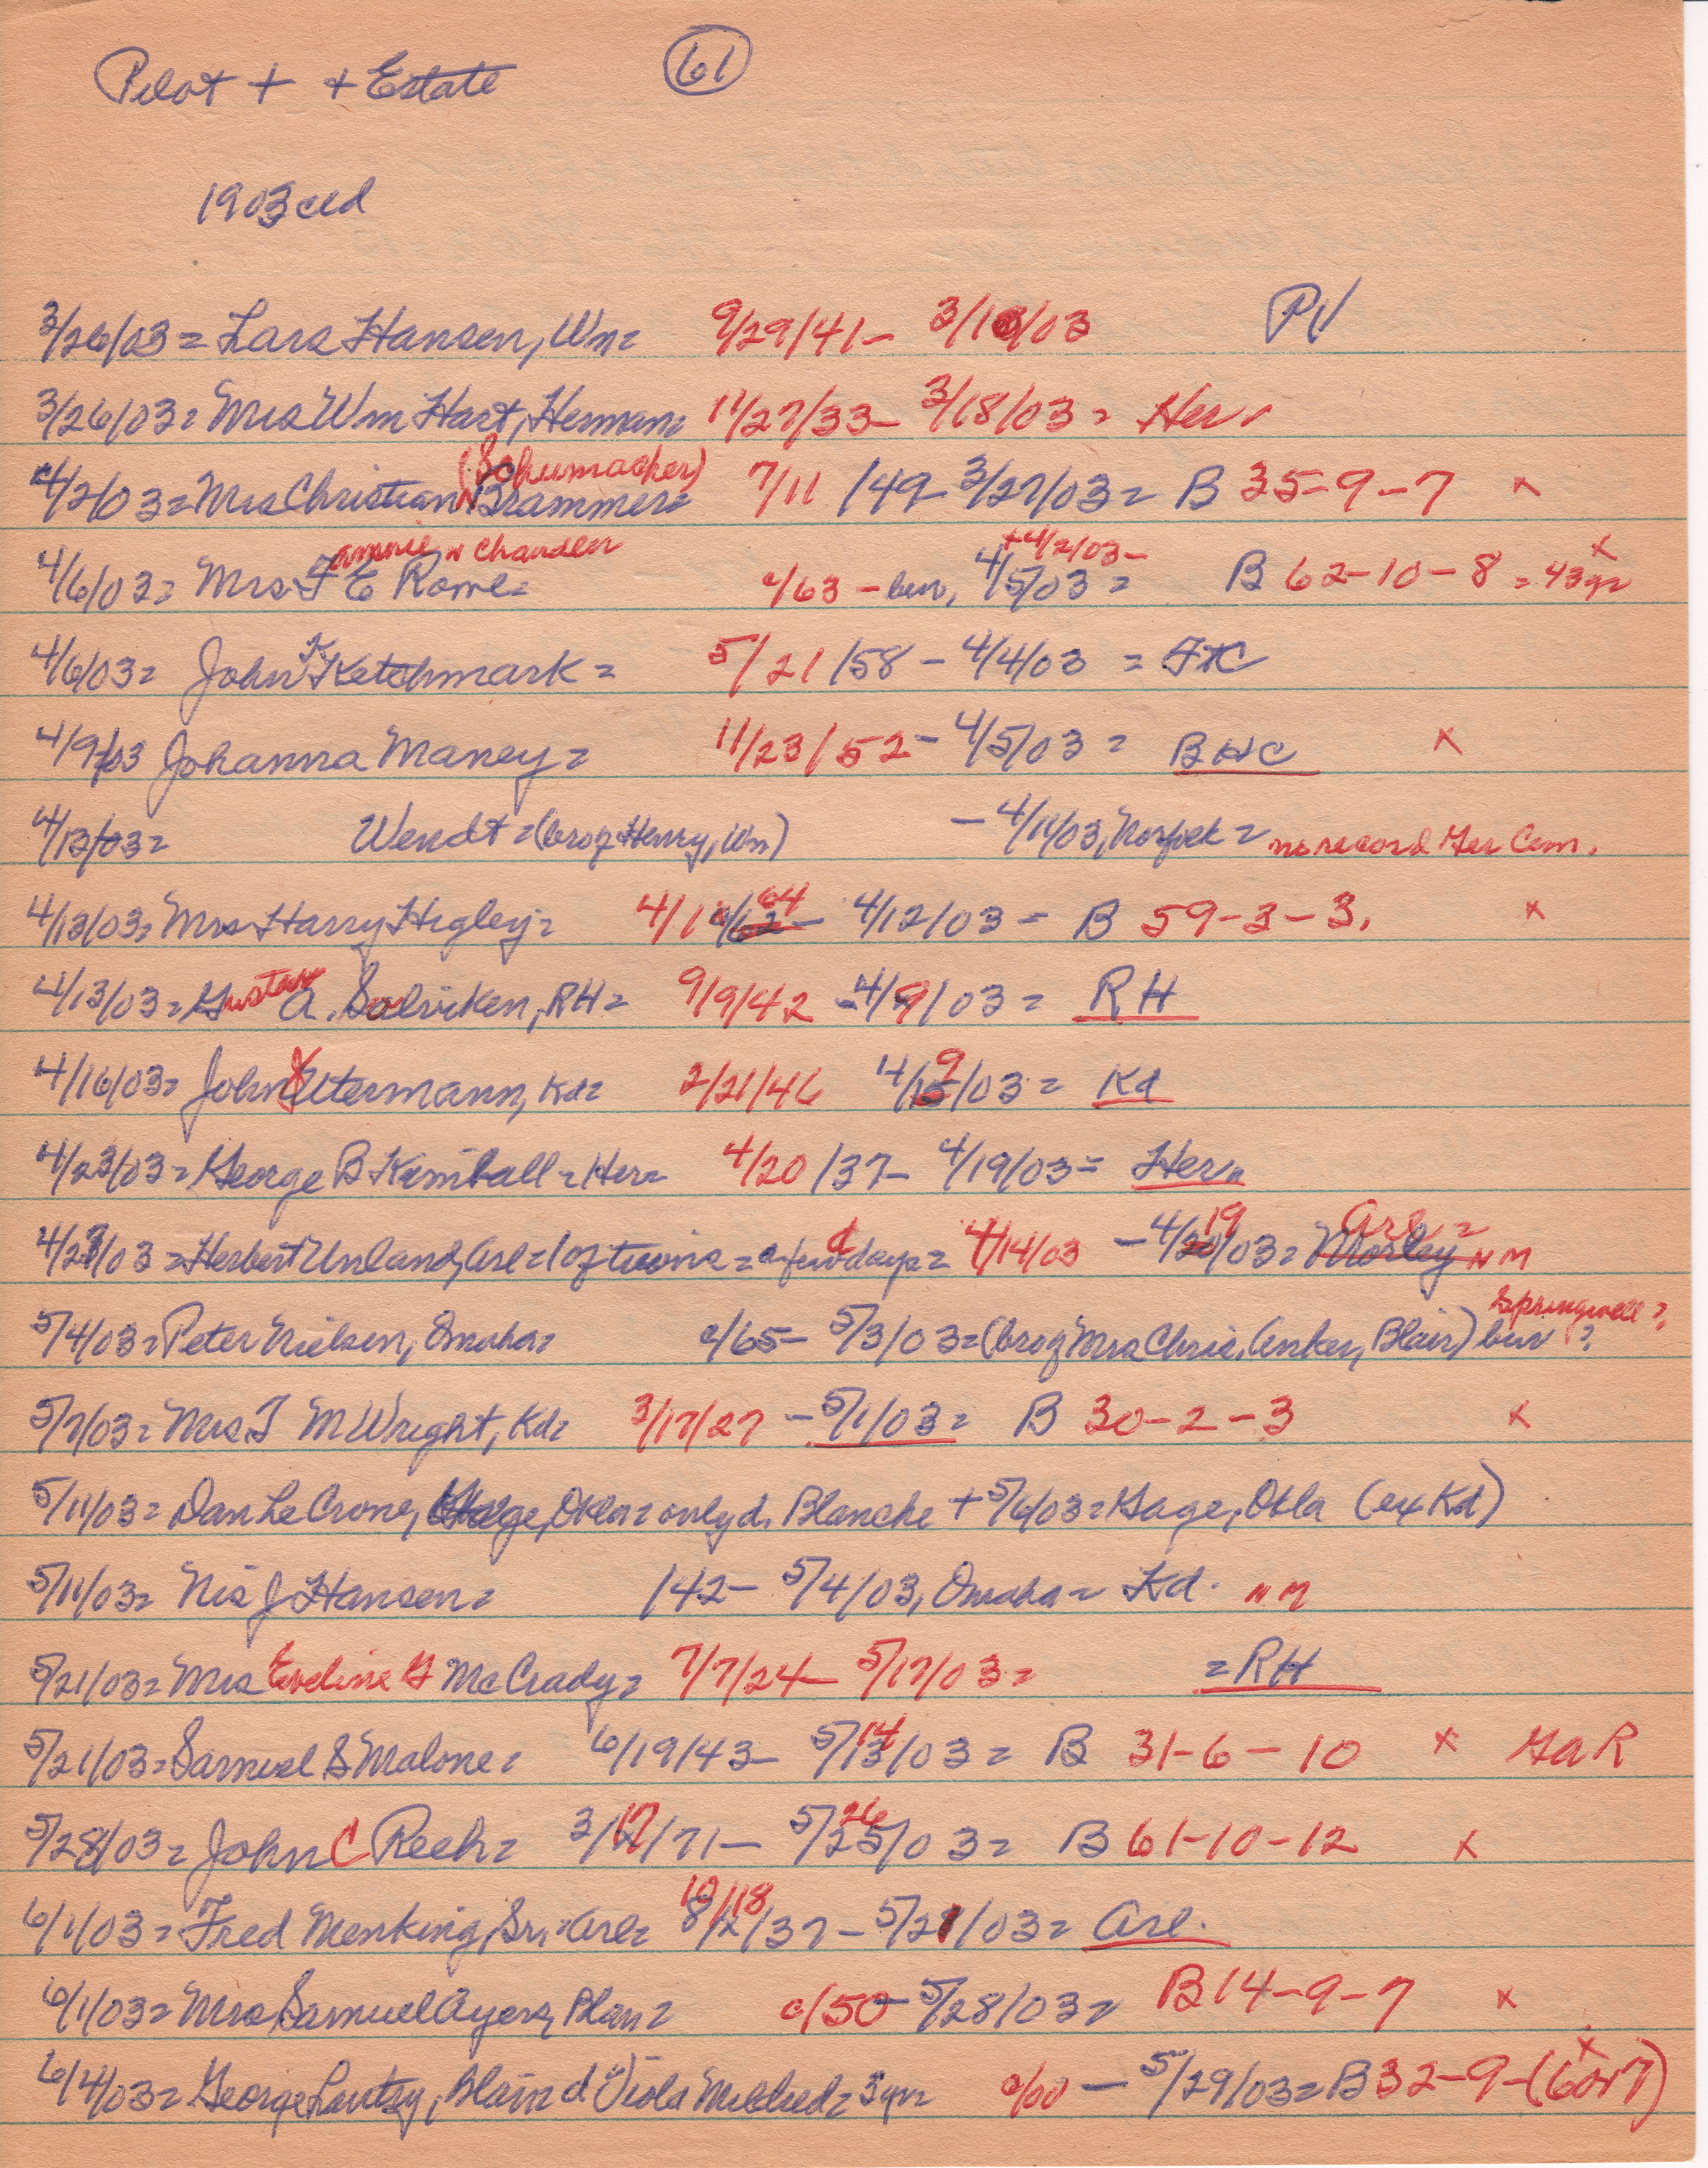 Pilot + + Estate 61
1903 cld
3/26/03 = Lars Hansen, Wn= 9/29/41 - 3/18/03 PV
3/26/03= Mrs Wm Hart, Herman= 11/27/33 - 3/18/03 = Her
(Schumacher)
4/2/03 = Mrs Christian Brammer= 7/11/49 - 3/27/03 = B 35-9-7 x
annie n Chandler +4/2/03 - x
4/6/03= Mrs F E Rowe= c/63 - bur, 4/5/03 = B 62-10-8 = 43yr
4/6/03= John K Ketchmark = 5/21/58 - 4/4/03 = FC
4/9/03 Johanna Maney = 11/23/52 - 4/5/03 = BHC x
4/13/03= Wendt = (bro of Henry, Wn) - 4/11/03, Norfolk = no record Ger Cem.
4/13/03= Mrs Harry Higley= 4/1 c/62 64 - 4/12/03 = B 59-3-3. x
4/13/03 = Gustav A. Solviken, RH= 9/9/42 - 4/9/03 = RH
4/16/03= John J Utermann, Kd= 2/21/46 4/15 9/03 = Kd
4/23/03= George B Kimball = Her= 4/20/37 - 4/19/03= Her
4/23/03 = Herbert Unland, Arl = 1 of twins = a few days = 4/14/03 - 4/20 19/03= Morley Arl = NM
Springwell?
5/4/03= Peter Nielsen, Omaha= c/65 - 5/3/03 = (bro of Mrs Chris. Anker, Blair) bur ?
5/7/03= Mrs T M Wright, Kd= 3/17/27 - 5/1/03= B 30-2-3 x
5/11/03= Dan LeCrone, Gage, Okla = only d. Blanche + 5/6/03= Gage, Okla (ex Kd)
5/11/03= Nis J Hansen= /42 - 5/4/03, Omaha = Kd. NM
5/21/03= Mrs Eveline G McCrady= 7/7/24 - 5/17/03= = RH
5/21/03= Samuel S Malone= 6/19/43 - 5/13 14/03 = B 31-6-10 x GaR
5/28/03= John C Reeh= 3/12 17/71 - 5/25 26/03 = B 61-10-12 x
6/1/03= Fred Menking, Sr. = Arl= 8/12 10/18/37 - 5/21/03= Arl.
6/1/03= Mrs Samuel Ayers, Blair= c/50 - 5/28/03= B 14-9-7 x
6/4/03= George Lantry, Blair= d Viola Mildred= 3 yr= c/00 - 5/29/03= B 32-9-(6 or 7) x